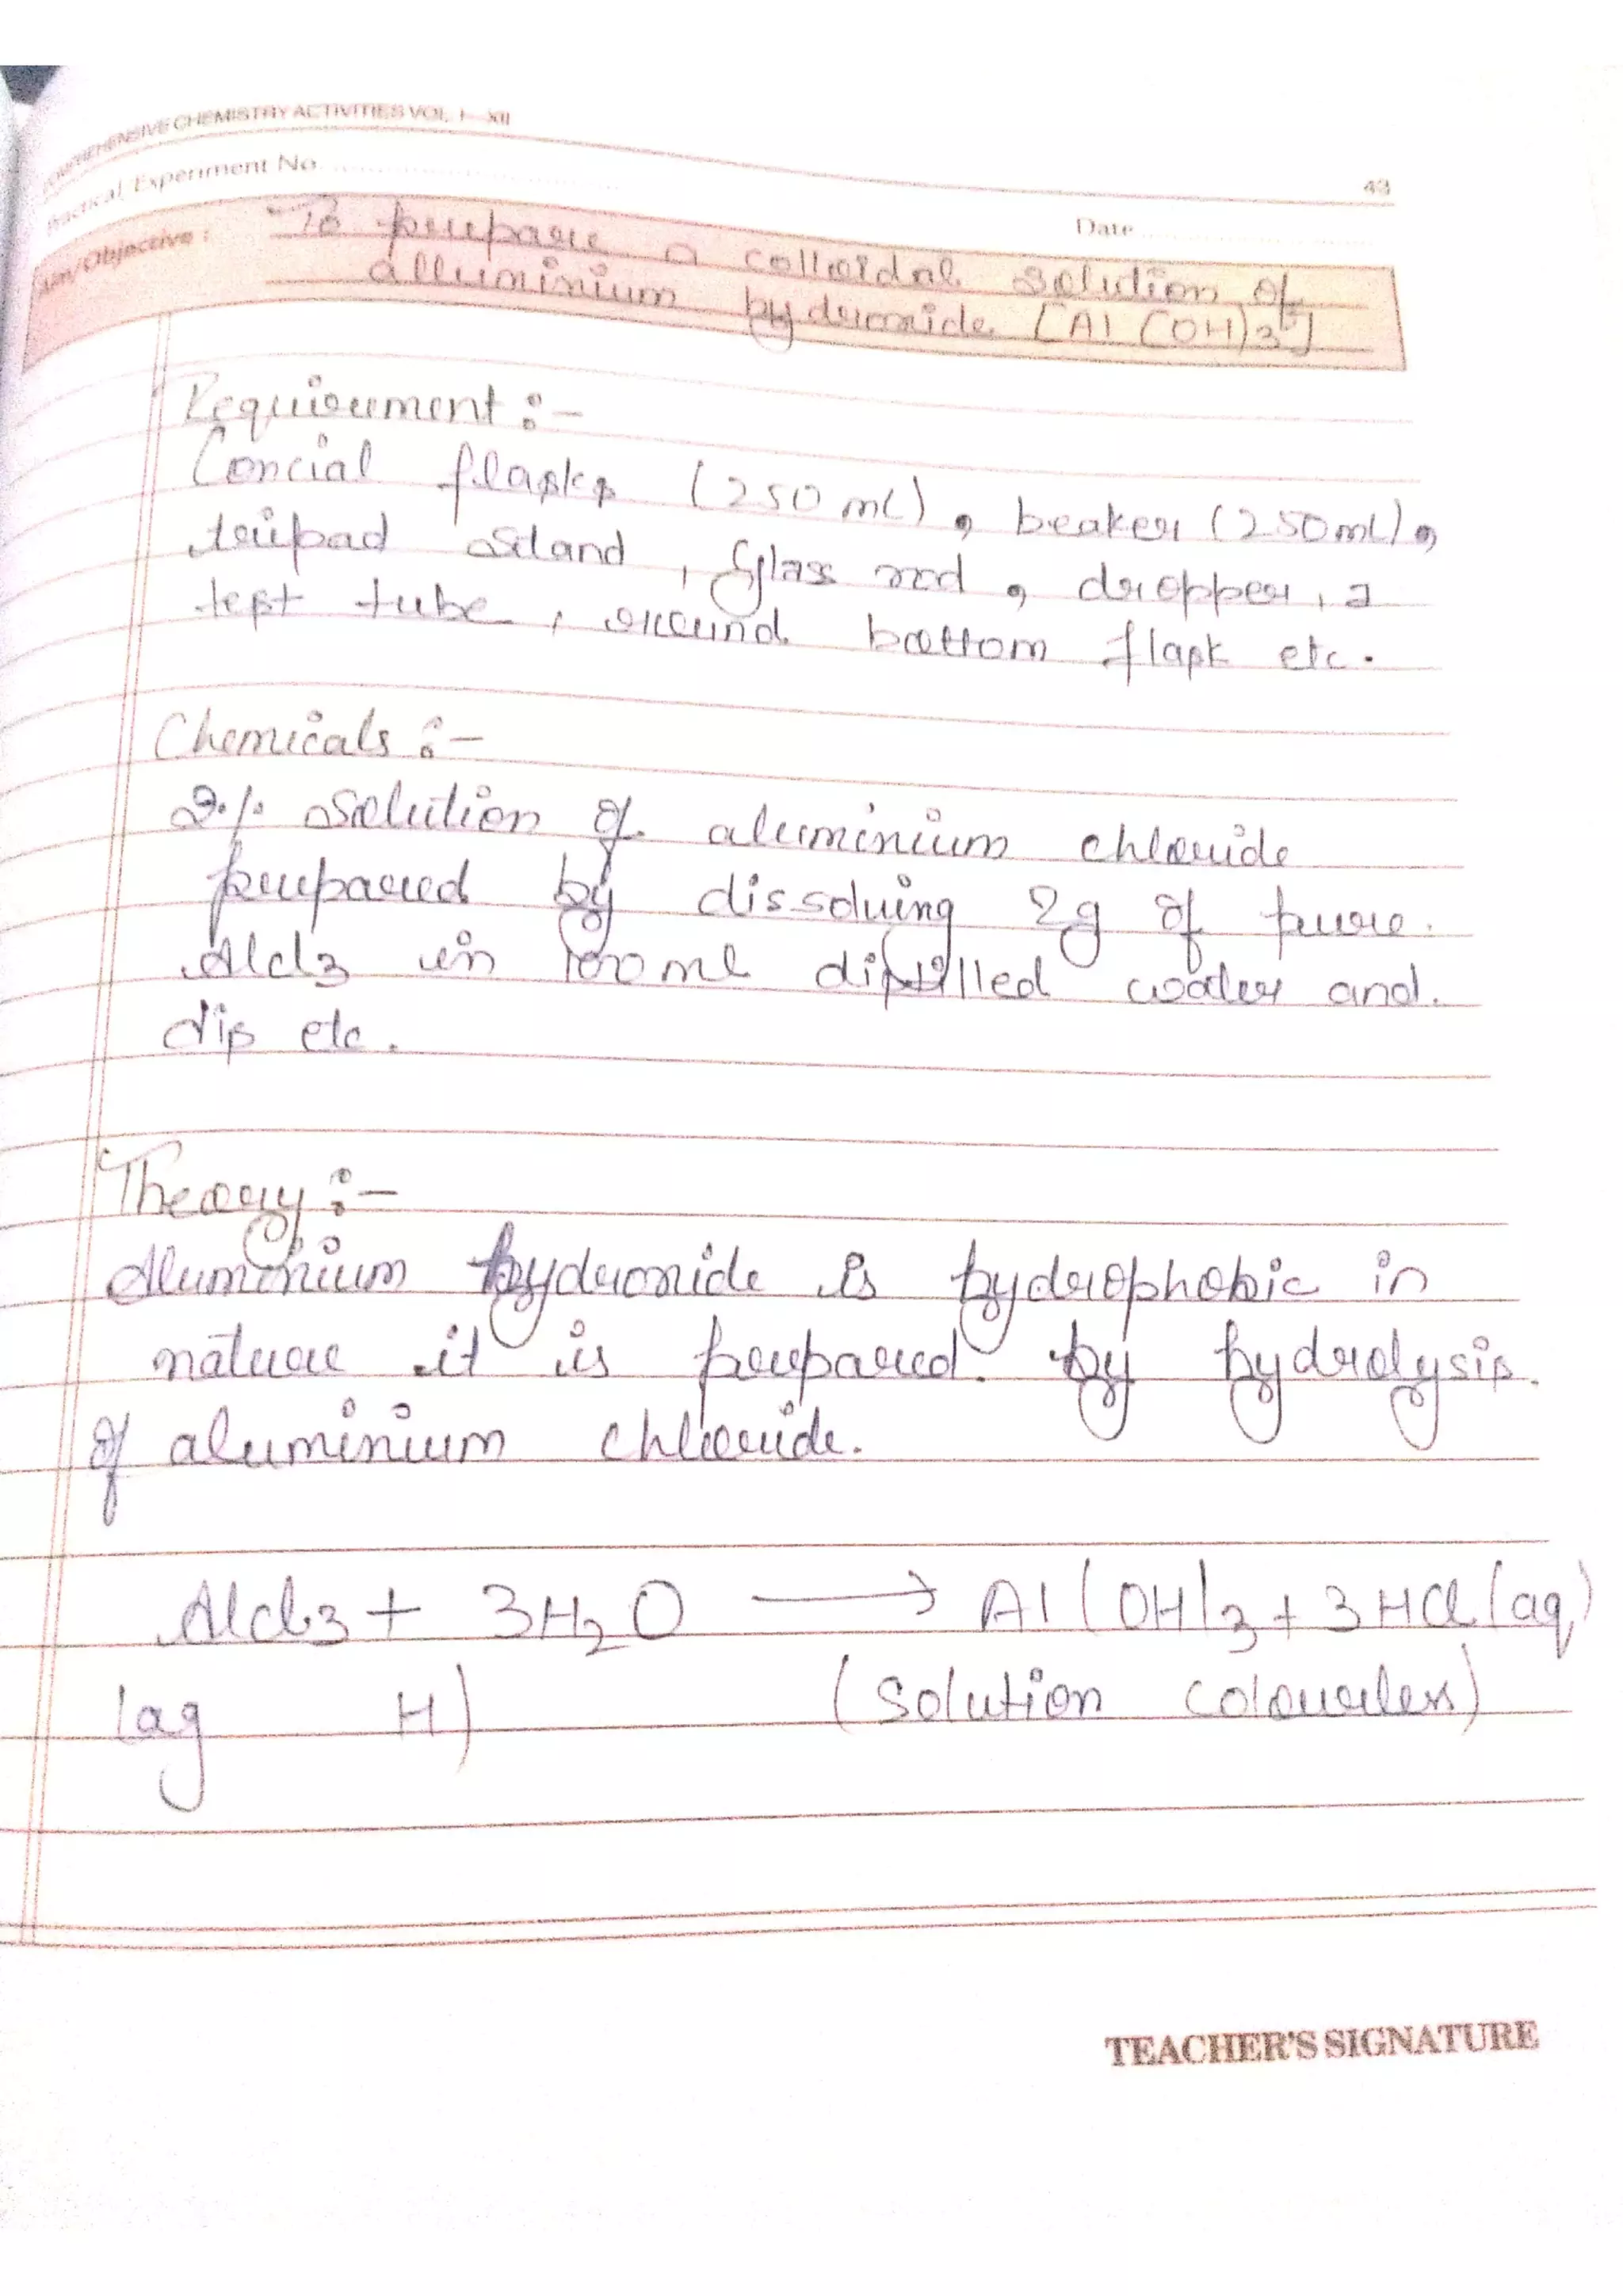 COMPREHENSIVE CHEMISTRY ACTIVITIES VOL. I - XII
43
Practical/Experiment No.
Date
Aim/Objective : To prepare a colloidal solution of
alluminium hydroxide [Al(OH)3]
Requirement :-
Concial flasks (250 ml), beaker (250ml),
tripad stand, Glass rod, dropper,
test tube, round bottom flask etc.
Chemicals :-
2% solution of aluminium chloride
prepared by dissoluing 2g of pure
Alcl3 in 100 ml distilled water and
dis etc.
Theory :-
Aluminium hydroxide is hydrophobic in
nature it is prepared by hydrolysis
of aluminium chloride.
Alcl3 + 3H2O ⟶ Al(OH)3 + 3HCl (aq)
(aq H) (Solution colourless)
TEACHER'S SIGNATURE